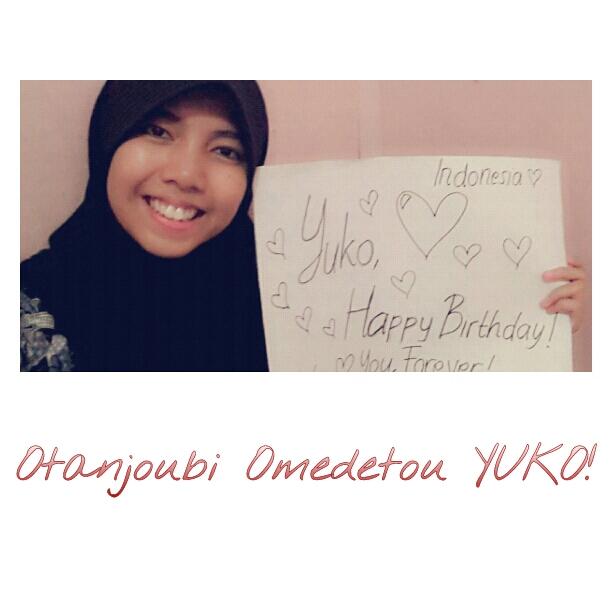 Indonesia ♡
Yuko,
Happy Birthday!
♡ You, Forever!
Otanjoubi Omedetou YUKO!